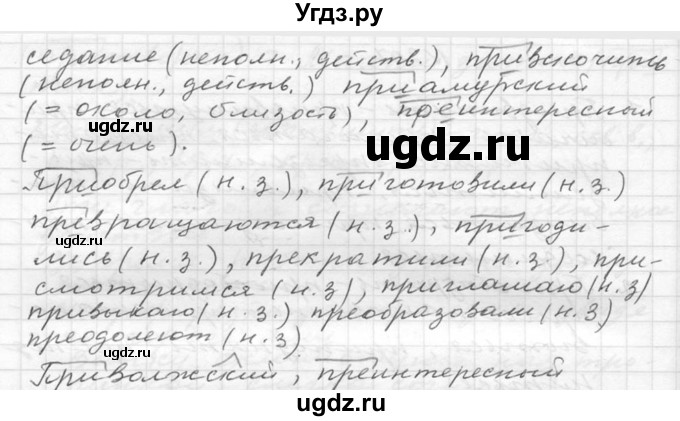 Угдз.ру
седание (неполн., действ.), привскочить
(неполн., действ.) приамурский
(= около, близость), преинтересный
(= очень).
ugdz.ru
ugdz.ru
Приобрел (н. з.), приготовили (н. з.)
ugdz.ru
превращаются (н. з.), пригоди-
ugdz.ru
лись (н. з.), прекратили (н. з), при-
смотримся (н. з), приглашаю (н. з)
привыкаю (н. з.) преобразовали (н. з)
ugdz.ru
преодолеют (н. з)
Приволжский, преинтересный
ugdz.ru